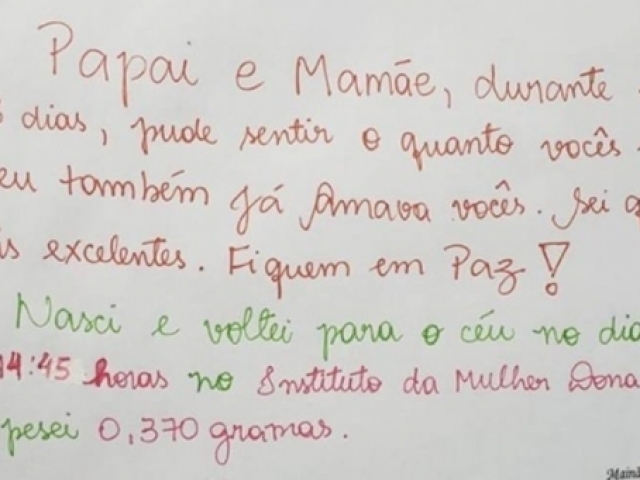 Papai e Mamãe, durante
dias, pude sentir o quanto vocês
eu também já Amava vocês. Sei q
is excelentes. Fiquem em Paz!
Nasci e voltei para o céu no dia
14:45 horas no Instituto da Mulher Dona
pesei 0,370 gramas.